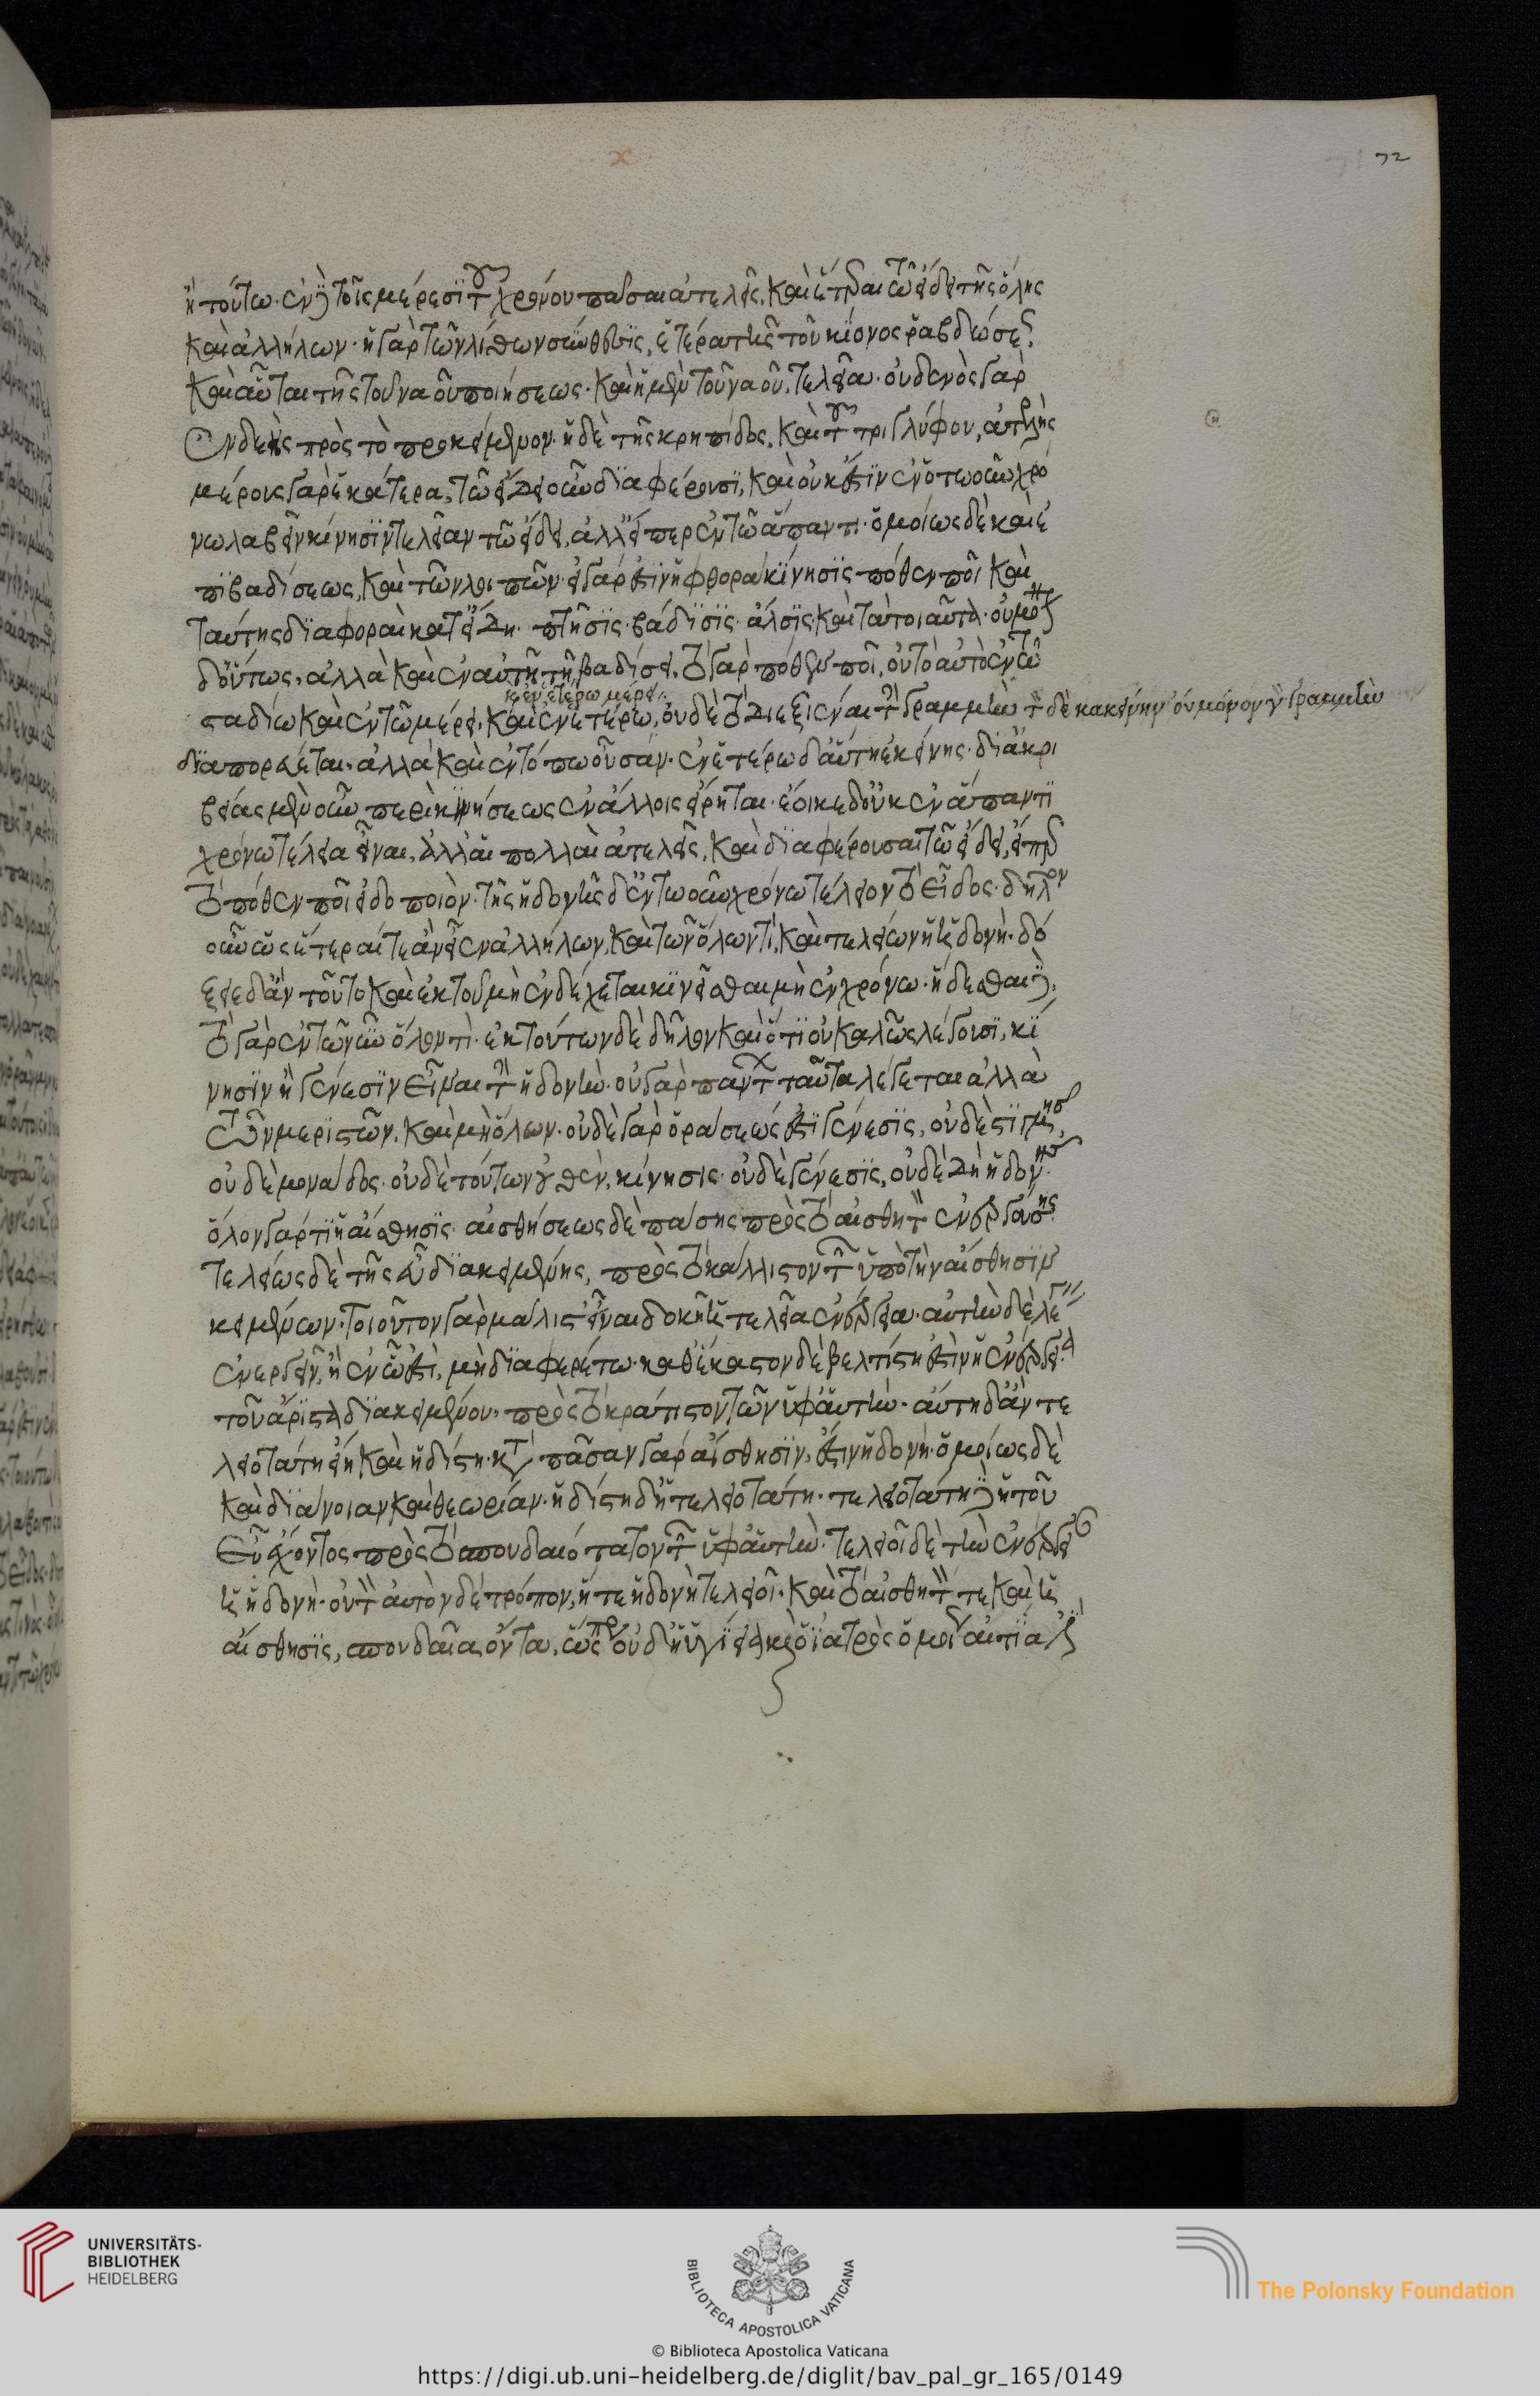 ἢ τούτω. ἐν δὲ τοῖς μέρεσι τοῦ χρόνου πᾶσαι ἀτελεῖς, καὶ ἕτεραι τῶ εἴδει τῆς ὅλης
καὶ ἀλλήλων. ἡ γὰρ τῶν λίθων σύνθεσις, ἑτέρα τῆς τοῦ κίονος ῥαβδώσεως.
καὶ αὗται τῆς τοῦ ναοῦ ποιήσεως. καὶ ἡ μὲν τοῦ ναοῦ, τελεία. οὐδενὸς γὰρ
ἐνδεὴς πρὸς τὸ προκείμενον. ἡ δὲ τῆς κρηπίδος, καὶ τοῦ τριγλύφου, ἀτελὴς
μέρους γὰρ ἑκατέρα, τῶ εἴδει οὖν διαφέρουσι, καὶ οὐκ ἔστιν ἐν ὁτωοῦν χρό
νω λαβεῖν κίνησιν τελείαν τῶ εἴδει, ἀλλ' εἴπερ ἐν τῶ ἅπαντι. ὁμοίως δὲ καὶ ἐ
πὶ βαδίσεως, καὶ τῶν λοιπῶν. εἰ γάρ ἐστιν ἡ φθορὰ κίνησις πόθεν ποῖ καὶ
ταύτης διαφοραὶ κατ' εἴδη. πτῆσις. βάδισις. ἅλσις. καὶ τὰ τοιαῦτα. οὐ μόνον
δ' οὕτως, ἀλλὰ καὶ ἐν αὐτῆ τῆ βαδίσει. τὸ γὰρ πόθεν ποῖ, οὐ τὸ αὐτὸ ἐν τῶ
καὶ ἐν ἑτέρω μέρει.
σταδίω καὶ ἐν τῶ μέρει. καὶ ἐν ἑτέρω, οὐδὲ τὸ διεξιέναι τὴν γραμμὴν τήνδε κἀκείνην οὐ μόνον γὰρ γραμμὴν
διαπορεύεται. ἀλλὰ καὶ ἐν τόπω οὖσαν. ἐν ἑτέρω δ' αὕτη ἐκείνης. δι' ἀκρι
βείας μὲν οὖν περὶ κινήσεως ἐν ἄλλοις εἴρηται. ἔοικε δ' οὐκ ἐν ἅπαντι
χρόνω τέλεία εἶναι. ἀλλ' αἱ πολλαὶ ἀτελεῖς, καὶ διαφέρουσαι τῶ εἴδει, εἴπερ
τὸ πόθεν ποῖ εἰδοποιὸν. τῆς ἡδονῆς δ' ἐν ὁτωοῦν χρόνω τέλειον τὸ εἶδος. δῆλον
οὖν ὡς ἕτεραί τε ἂν εἶεν ἀλλήλων, καὶ τῶν ὅλων τὶ, καὶ τελείων ἡ ἡδονή. δό
ξειε δ' ἂν τοῦτο καὶ ἐκ τοῦ μὴ ἐνδέχεται κινεῖσθαι μὴ ἐν χρόνω. ἥδεσθαι δέ.
τὸ γὰρ ἐν τῶ νῦν ὅλον τὶ. ἐκ τούτων δὲ δῆλον καὶ ὅτι οὐ καλῶς λέγουσι, κί
νησιν ἢ γένεσιν εἶναι τὴν ἡδονήν. οὐ γὰρ πάντων ταῦτα λέγεται ἀλλὰ
τῶν μεριστῶν. καὶ μὴ ὅλων. οὐδὲ γὰρ ὁράσεώς ἐστι γένεσις, οὐδὲ στιγμῆς,
οὐδὲ μονάδος. οὐδὲ τούτων οὐθὲν, κίνησις. οὐδὲ γένεσις, οὐδὲ δὴ ἡδονῆς.
ὅλον γάρ τι ἡ αἴσθησις. αἰσθήσεως δὲ πάσης πρὸς τὸ αἰσθητὸν ἐνεργούσης.
τελείως δὲ τῆς εὖ διακειμένης, πρὸς τὸ κάλλιστον τῶν ὑπὸ τὴν αἴσθησιν
κειμένων. τοιοῦτον γὰρ μάλιστ' εἶναι δοκεῖ ἡ τελεία ἐνέργεια. αὐτὴν δὲ λέγειν
ἐνεργεῖν, ἢ ἐν ὧ ἐστὶ, μὴ διαφερέτω. καθ' ἕκαστον δὲ βελτίστη ἐστὶν ἡ ἐνέργεια.
τοῦ ἄριστα διακειμένου. πρὸς τὸ κράτιστον τῶν ὑφ' αὑτήν. αὕτη δ' ἂν τε
λειοτάτη εἴη καὶ ἡδίστη. κατὰ πᾶσαν γὰρ αἴσθησιν, ἐστὶν ἡδονή. ὁμοίως δὲ
καὶ διάνοιαν καὶ θεωρίαν. ἡδίστη δ' ἡ τελειοτάτη. τελειοτάτη δὲ ἡ τοῦ
εὖ ἔχοντος πρὸς τὸ σπουδαιότατον τῶν ὑφ' αὑτήν. τελειοῖ δὲ τὴν ἐνέργειαν
ἡ ἡδονή. οὐ τὸν αὐτὸν δὲ τρόπον, ἥ τε ἡδονὴ τελειοῖ. καὶ τὸ αἰσθητὸν τε καὶ ἡ
αἴσθησις, σπουδαῖα ὄντα. ὥσπερ οὐδ' ἡ ὑγίεια καὶ ὁ ἰατρὸς ὁμοίως αἴτιά ἐστι
72
UNIVERSITÄTS-
BIBLIOTHEK
HEIDELBERG
BIBLIOTECA APOSTOLICA VATICANA
The Polonsky Foundation
© Biblioteca Apostolica Vaticana
https://digi.ub.uni-heidelberg.de/diglit/bav_pal_gr_165/0149